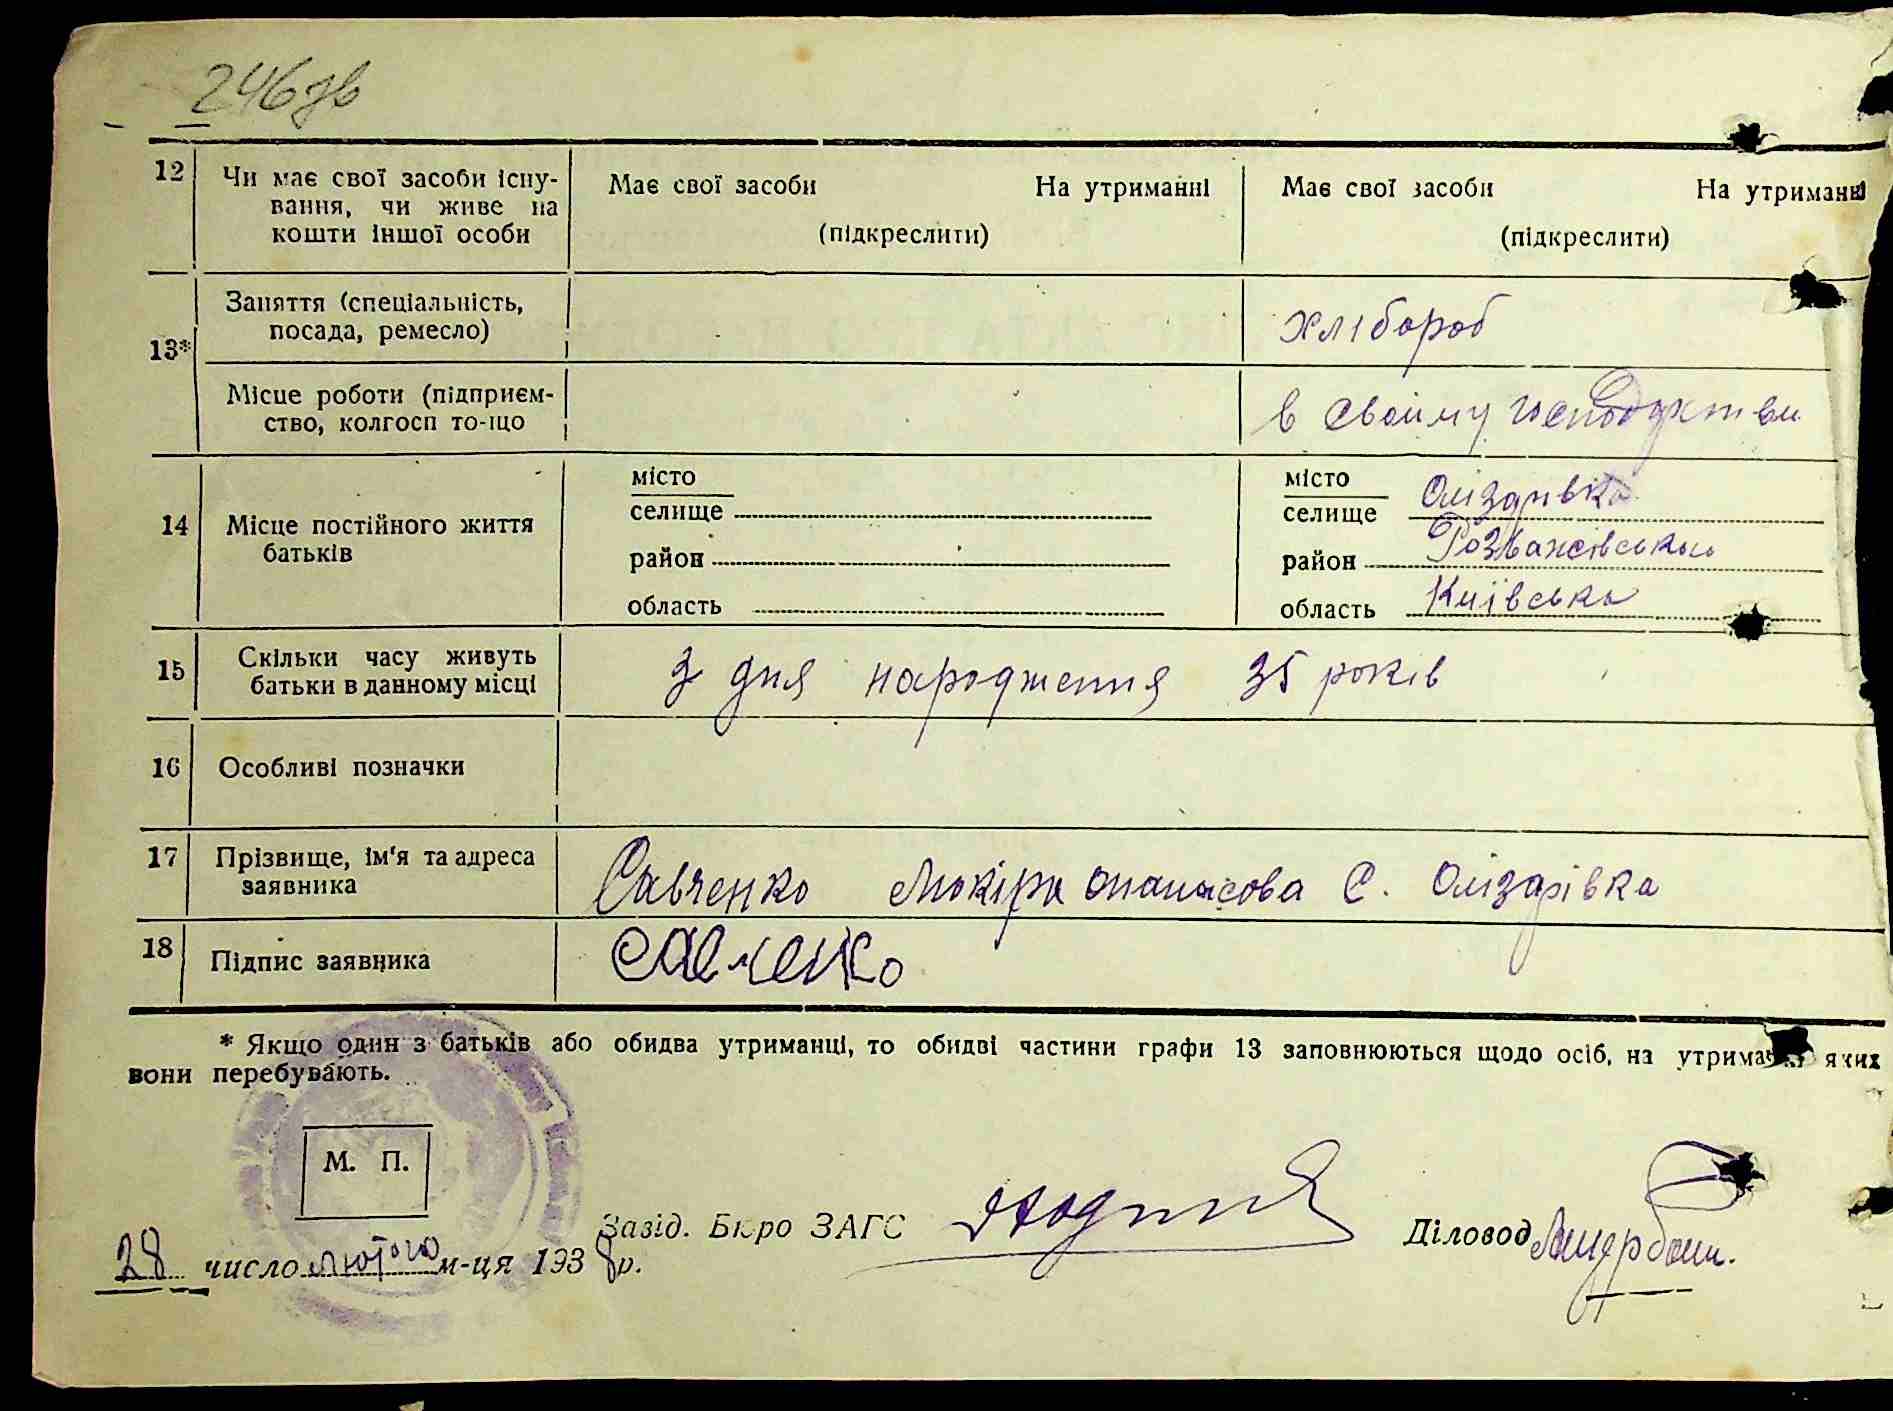 246 зв
12 Чи має свої засоби існу- Має свої засоби На утриманні Має свої засоби На утриманні
вання, чи живе на (підкреслити) (підкреслити)
кошти іншої особи
13* Заняття (спеціальність, хлібороб
посада, ремесло)
Місце роботи (підприєм- в своїму господарстви
ство, колгосп то-що
14 Місце постійного життя батьків
місто
селище
район
область
місто
селище Олізарівка
район Розважівськи
область Київська
15 Скільки часу живуть З дня народження 35 років
батьки в данному місці
16 Особливі позначки
17 Прізвище, ім'я та адреса Савченко Мокіра опанасова С. Олізарівка
заявника
18 Підпис заявника Савченко
* Якщо один з батьків або обидва утриманці, то обидві частини графи 13 заповнюються щодо осіб, на утриманні яких
вони перебувають.
М. П.
Завід. Бюро ЗАГС Діловод
28 число лютого м-ця 1938 р.